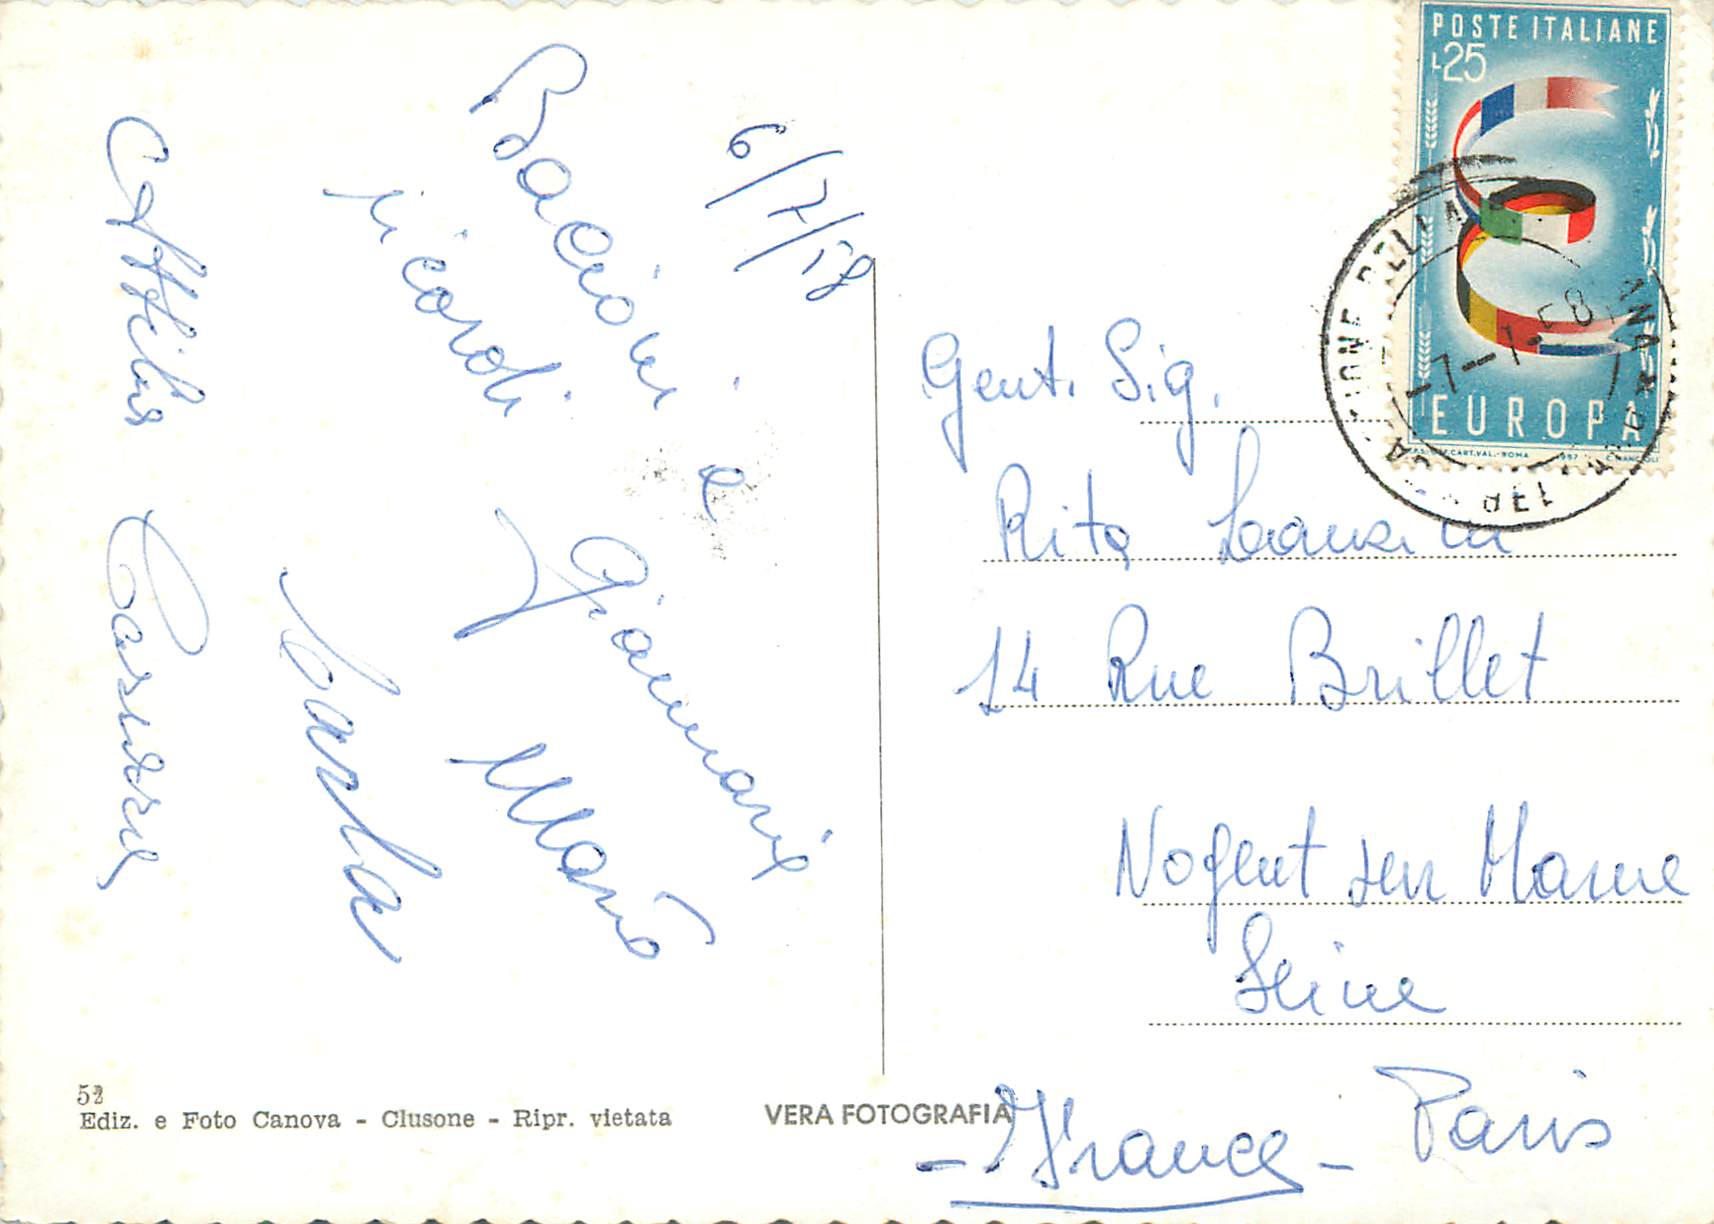 6/7/58
Bacioni e
ricordi
Gianmaria
Mario
Carla
Attilio
POSTE ITALIANE
L25
EUROPA
-7-1-58
Gent. Sig.
Rita
14 Rue Brillet
Nogent sur Marne
Seine
Paris
- France -
52
Ediz. e Foto Canova - Clusone - Ripr. vietata
VERA FOTOGRAFIA